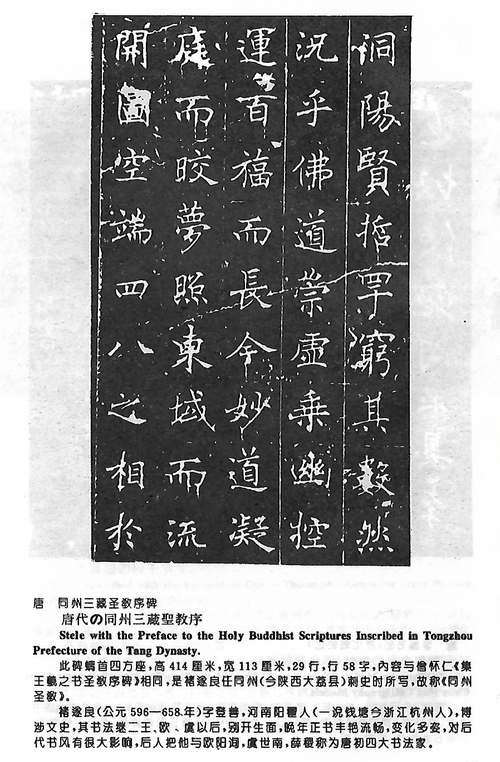 洞陽賢哲罕窮其數然
況乎佛道崇虛乘幽控
運百福而長今妙道凝
庭而皎夢照東域而流
開圖空端四八之相於
唐 同州三藏圣教序碑
唐代の同州三藏聖教序
Stele with the Preface to the Holy Buddhist Scriptures Inscribed in Tongzhou
Prefecture of the Tang Dynasty.
此碑螭首四方座，高414厘米，宽113厘米，29行，行58字，内容与僧怀仁《集
王羲之书圣教序碑》相同，是褚遂良任同州(今陕西大荔县)刺史时所写，故称《同州
圣教》。
褚遂良(公元596—658.年)字登善，河南阳翟人(一说钱塘今浙江杭州人)，博
涉文史，其书法继二王、欧、虞以后，别开生面，晚年正书丰艳流畅，变化多姿，对后
代书风有很大影响，后人把他与欧阳询，虞世南，薛稷称为唐初四大书法家。